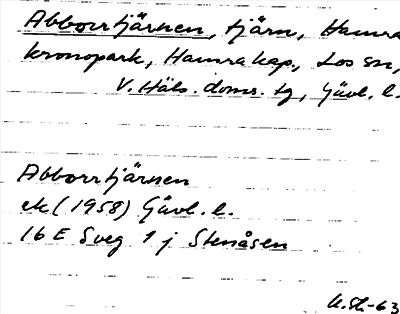 Abborrtjärnen, tjärn, Hamra
kronopark, Hamra kap., Los sn,
V. Häls. doms. tg, Gävl. l.
Abborrtjärnen
ek (1958) Gävl. l.
16 E Sveg 1 j Stenåsen